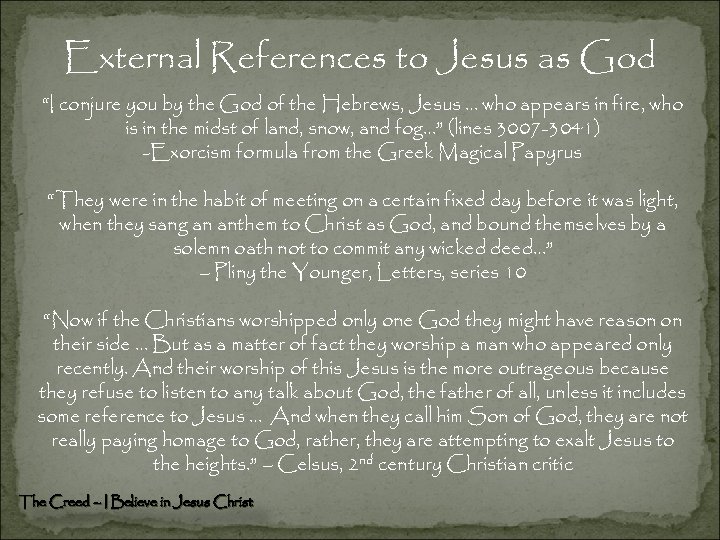 External References to Jesus as God
“I conjure you by the God of the Hebrews, Jesus ... who appears in fire, who
is in the midst of land, snow, and fog...” (lines 3007-3041)
-Exorcism formula from the Greek Magical Papyrus
“They were in the habit of meeting on a certain fixed day before it was light,
when they sang an anthem to Christ as God, and bound themselves by a
solemn oath not to commit any wicked deed...”
– Pliny the Younger, Letters, series 10
“Now if the Christians worshipped only one God they might have reason on
their side ... But as a matter of fact they worship a man who appeared only
recently. And their worship of this Jesus is the more outrageous because
they refuse to listen to any talk about God, the father of all, unless it includes
some reference to Jesus ... And when they call him Son of God, they are not
really paying homage to God, rather, they are attempting to exalt Jesus to
the heights.” – Celsus, 2nd century Christian critic
The Creed – I Believe in Jesus Christ